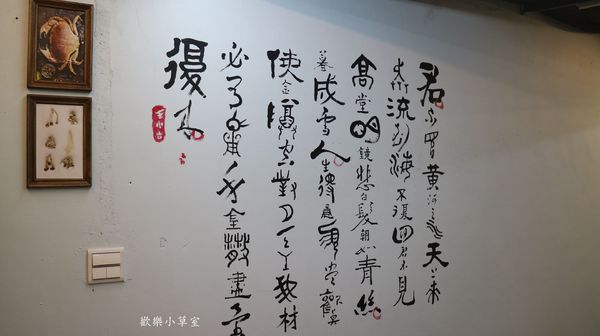 君不見黃河之水天上來
奔流到海不復回君不見
高堂明鏡悲白髮朝如青絲
暮成雪人生得意須盡歡莫
使金樽空對月天生我材
必有用千金散盡還
復來
歡樂小草室